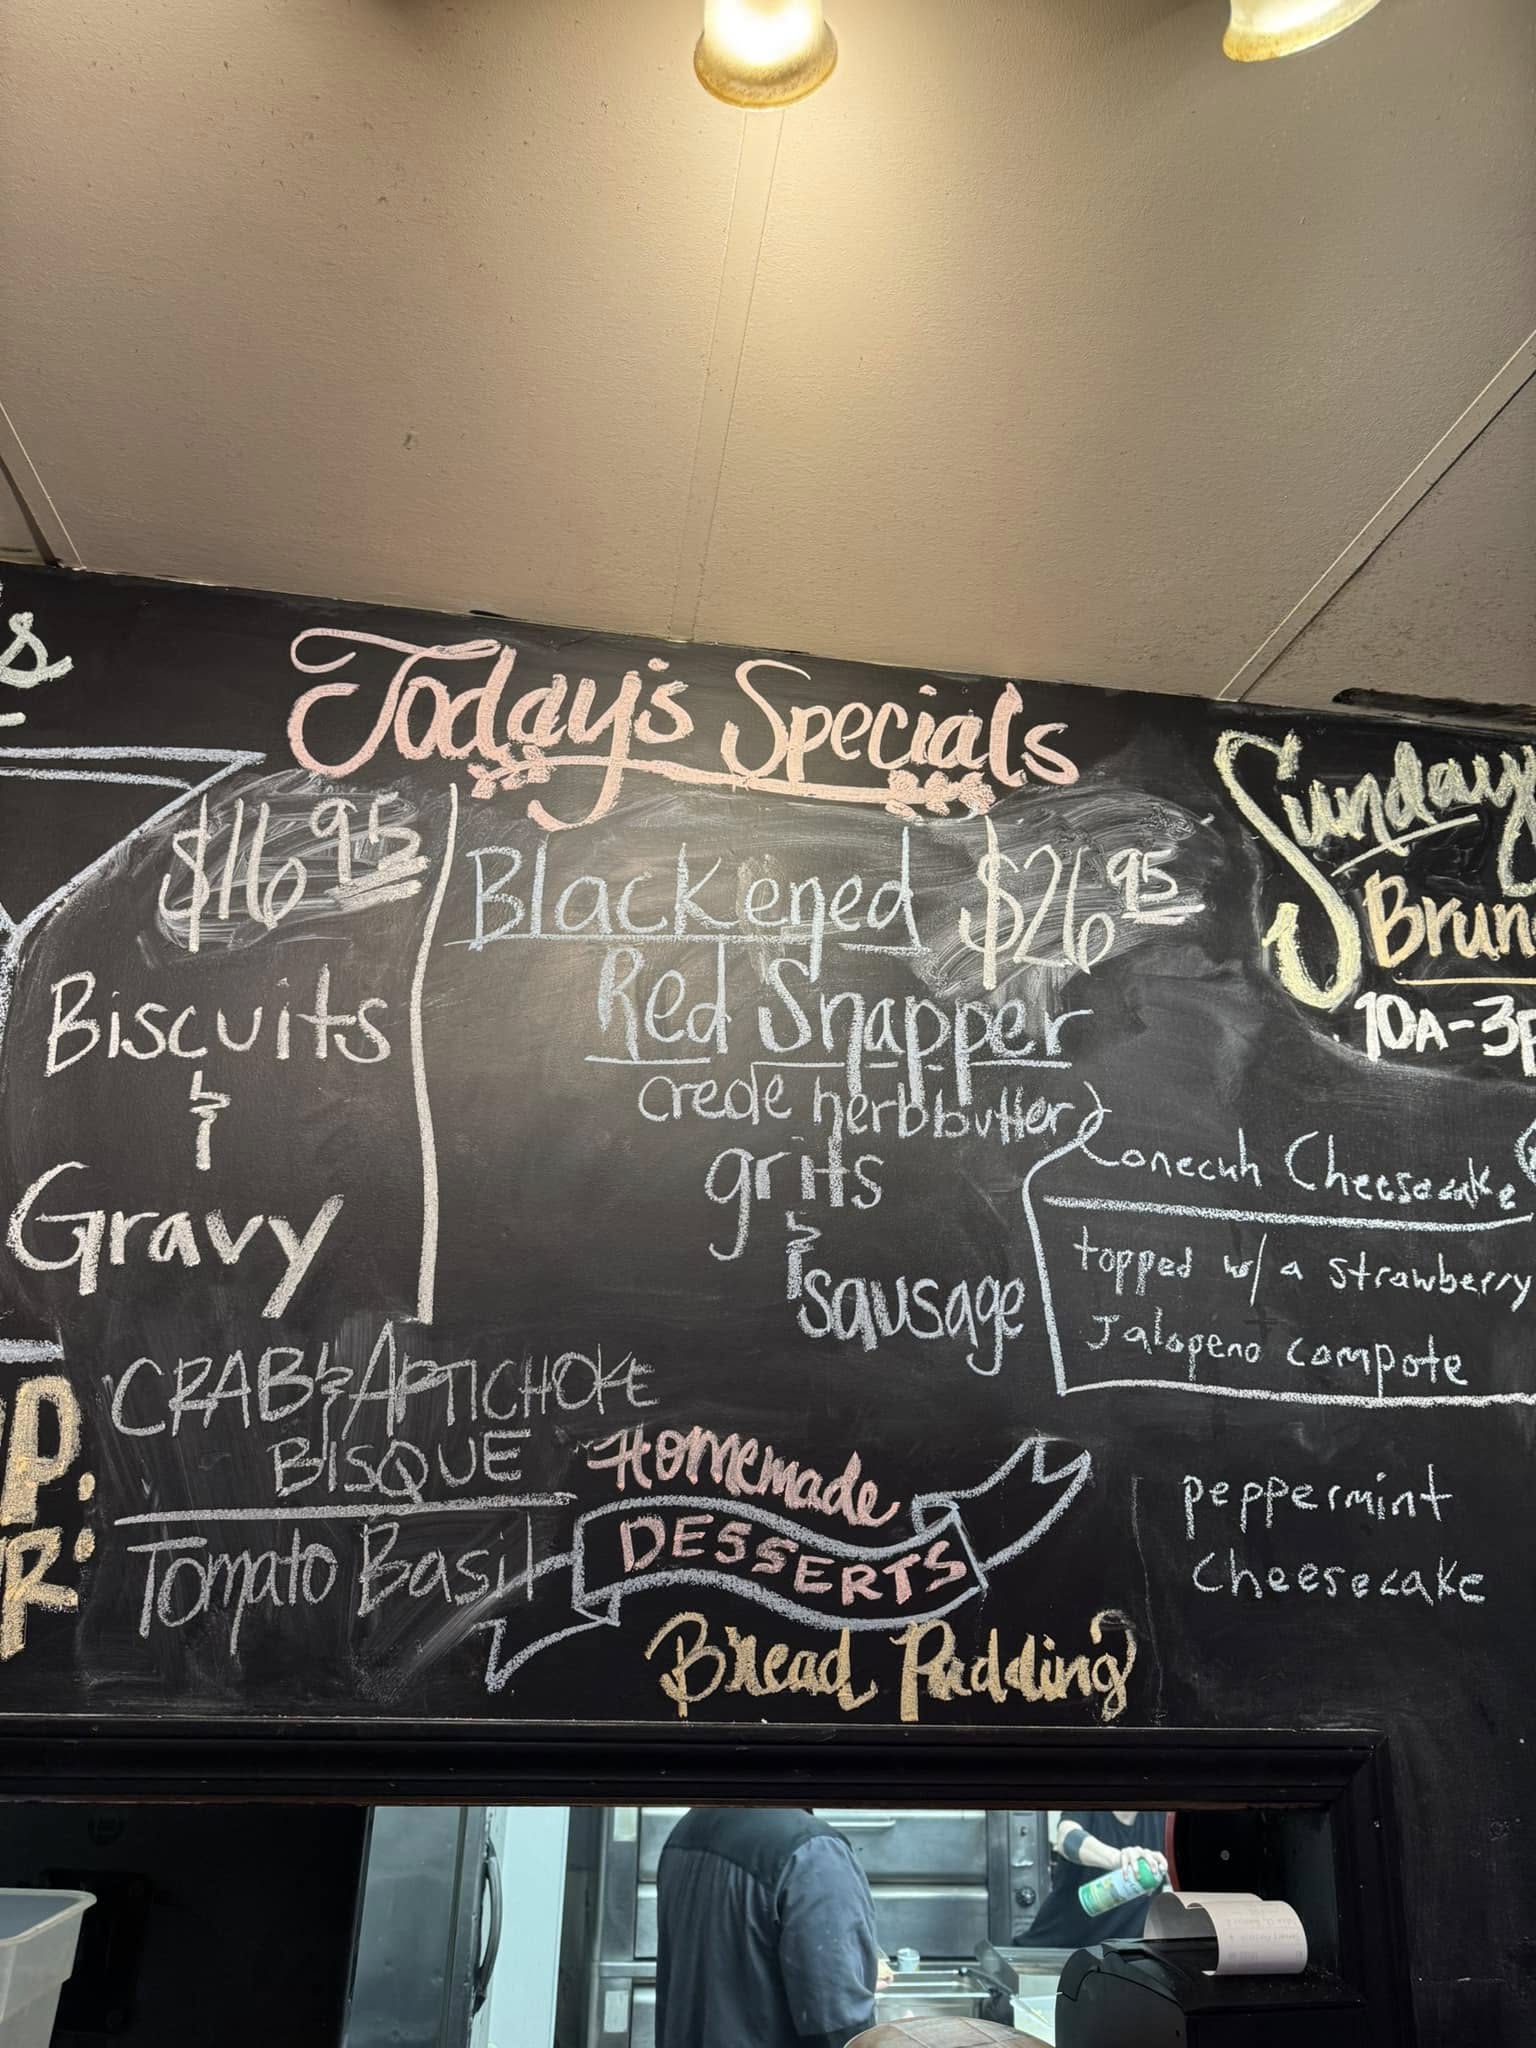 Today's Specials
$16.95
Biscuits
&
Gravy
Blackened $26.95
Red Snapper
creole herb butter
grits
&
sausage
Sunday
10A-3P
Conecuh Cheesecake
topped w/ a strawberry
Jalapeno compote
CRAB & ARTICHOKE
BISQUE
Tomato Basil
Homemade
DESSERTS
Bread Pudding
peppermint
cheesecake